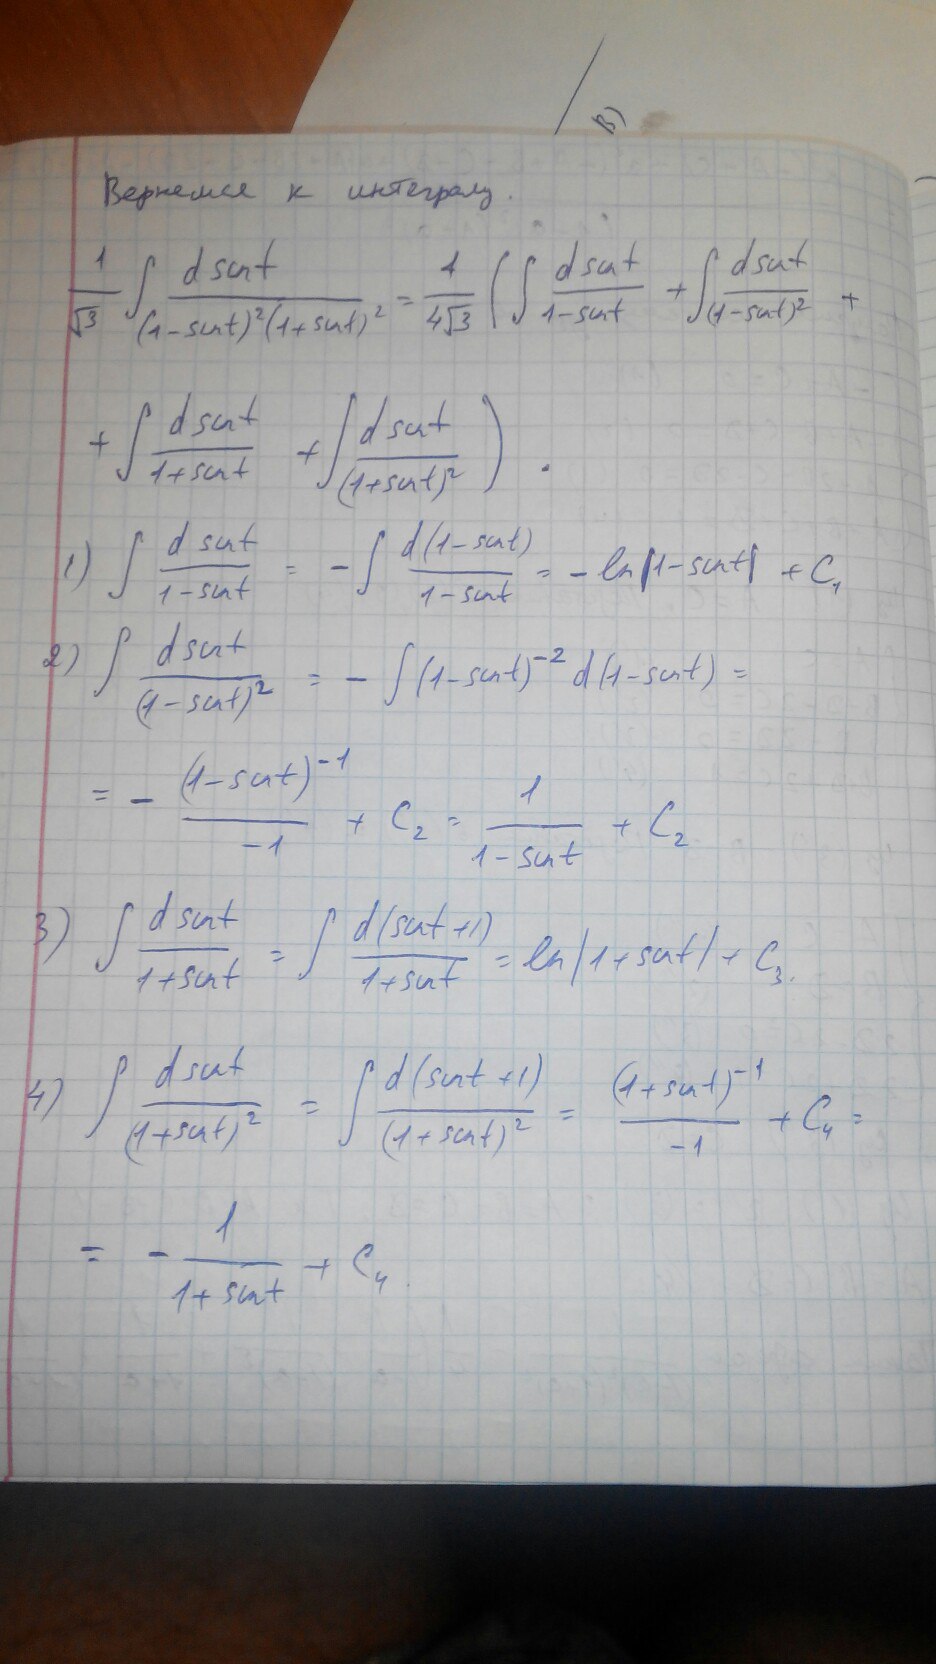 В)
Вернемся к интегралу.
1/√3 ∫ d sint / (1-sint)²(1+sint)² = 1/4√3 ( ∫ d sint / 1-sint + ∫ d sint / (1-sint)² +
+ ∫ d sint / 1+sint + ∫ d sint / (1+sint)² ) .
1) ∫ d sint / 1-sint = - ∫ d(1-sint) / 1-sint = - ln|1-sint| + C₁
2) ∫ d sint / (1-sint)² = - ∫ (1-sint)⁻² d(1-sint) =
= - (1-sint)⁻¹ / -1 + C₂ = 1 / 1-sint + C₂
3) ∫ d sint / 1+sint = ∫ d(sint+1) / 1+sint = ln|1+sint| + C₃.
4) ∫ d sint / (1+sint)² = ∫ d(sint+1) / (1+sint)² = (1+sint)⁻¹ / -1 + C₄ =
= - 1 / 1+sint + C₄.